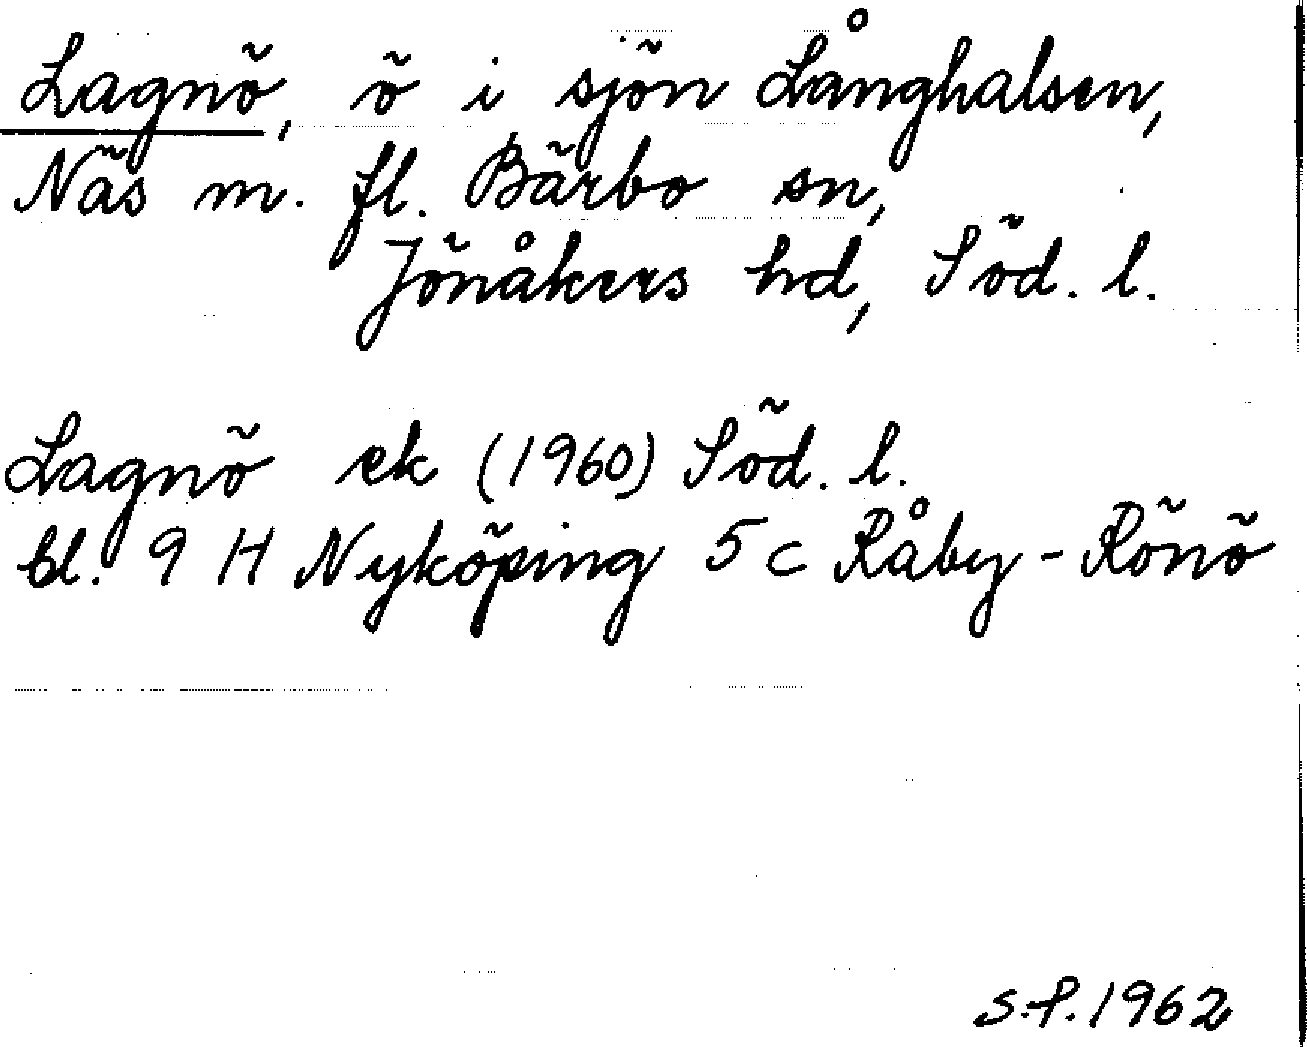 Lagnö, ö i sjön Långhalsen,
Näs m. fl. Bärbo sn,
Jönåkers hd, Söd. l.
Lagnö ek (1960) Söd. l.
bl. 9 H Nyköping 5 c Råby-Rönö
S.P. 1962